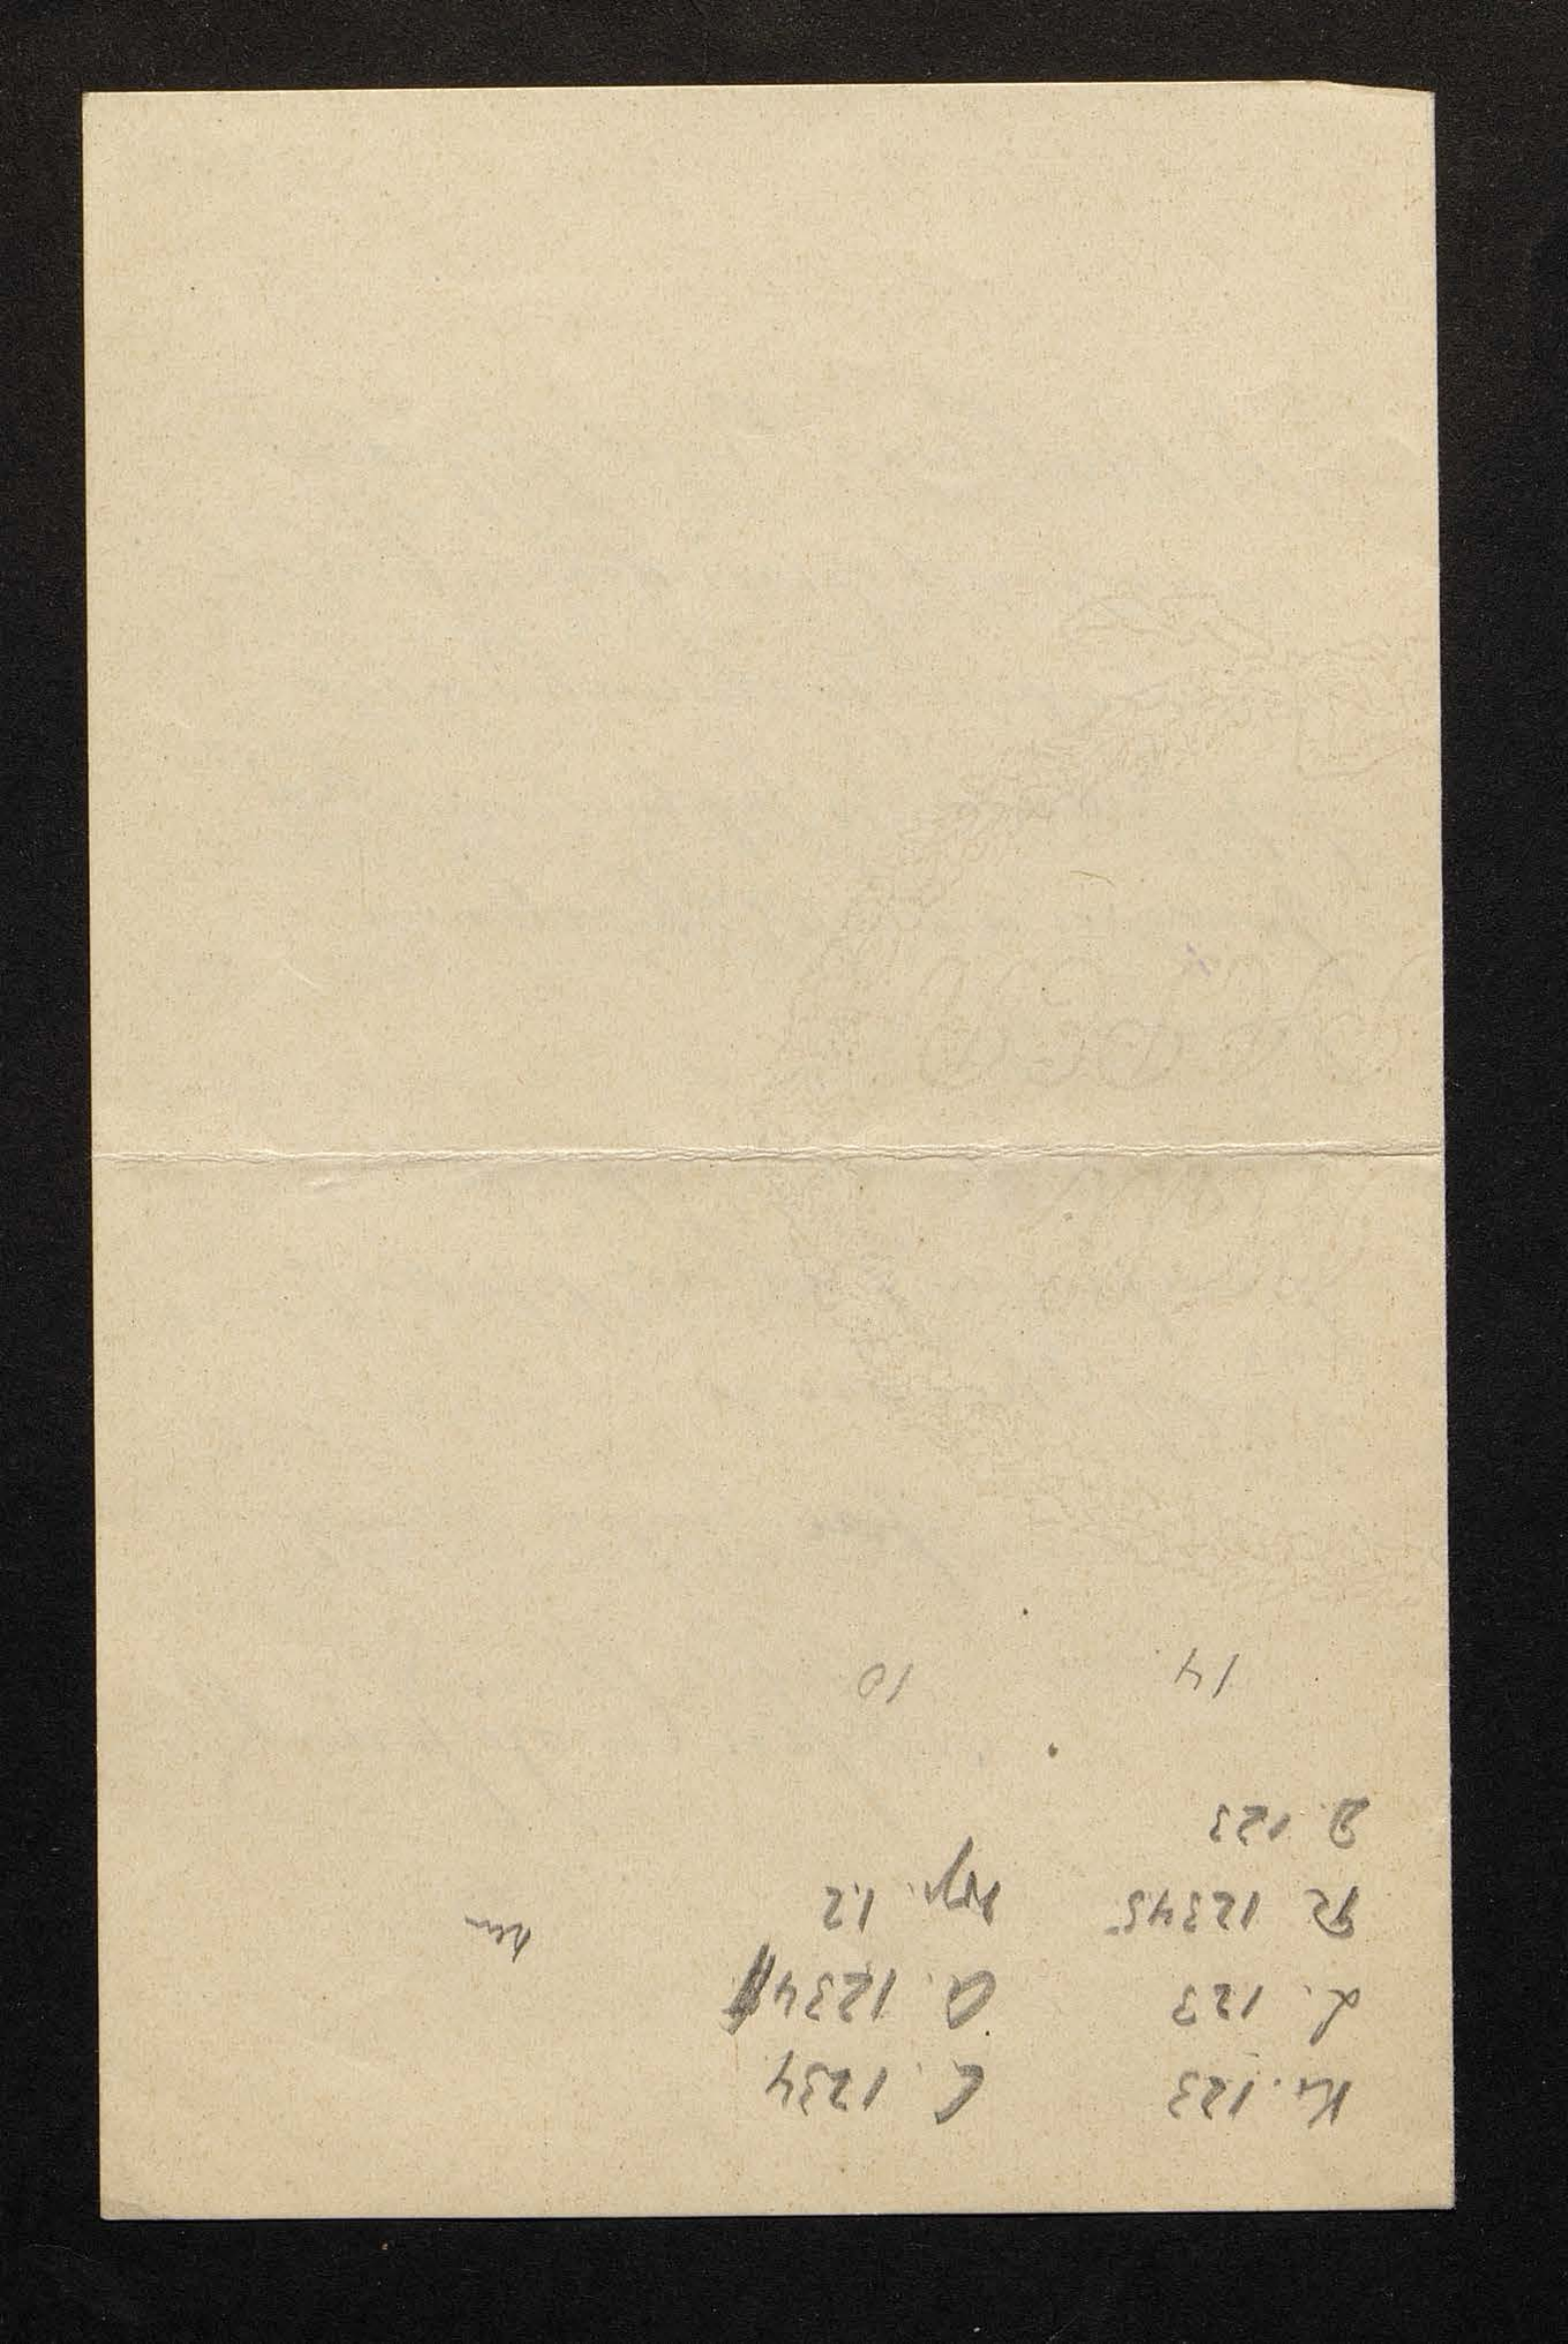 Kr. 123 C. 1234
L. 123 A. 1234
R. 12345 1.2
D. 123
14 10